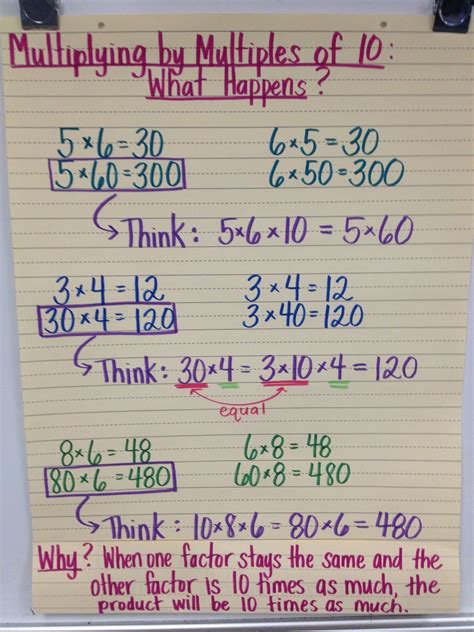 Multiplying by Multiples of 10:
What Happens?
5×6=30 6×5=30
5×60=300 6×50=300
Think: 5×6×10 = 5×60
3×4=12 3×4=12
30×4=120 3×40=120
Think: 30×4 = 3×10×4 = 120
equal
8×6=48 6×8=48
80×6=480 60×8=480
Think: 10×8×6=80×6=480
Why? When one factor stays the same and the
other factor is 10 times as much, the
product will be 10 times as much.